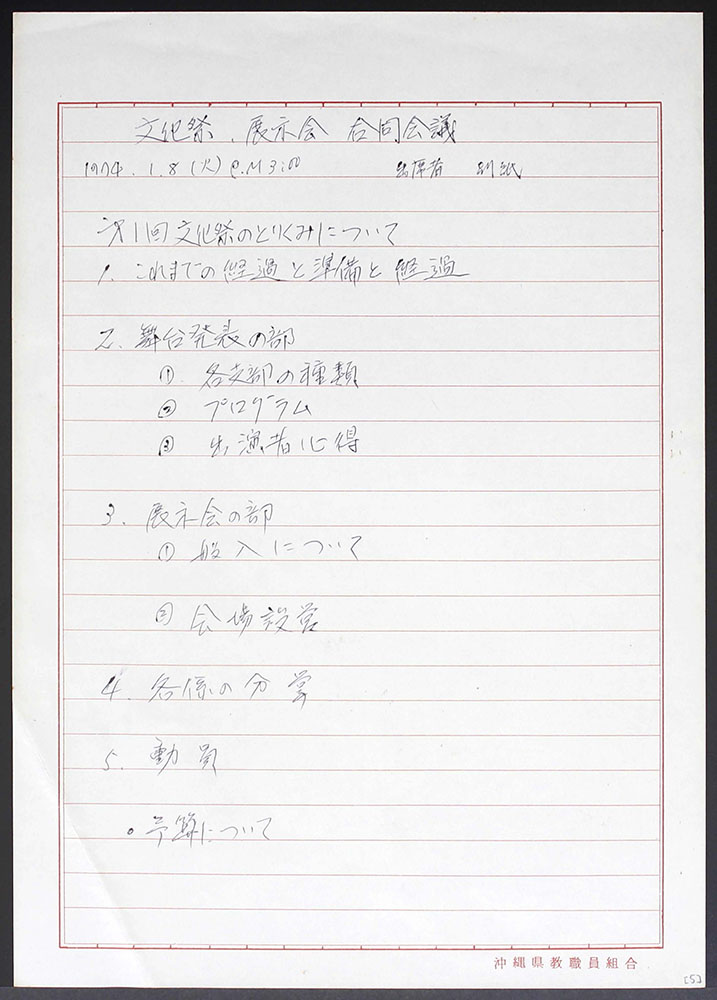 文化祭、展示会 合同会議
1974.1.8(火)P.M3:00 出席者 別紙
第11回文化祭のとりくみについて
1. これまでの経過と準備と経過
2. 舞台発表の部
① 各支部の種類
② プログラム
③ 出演者心得
3. 展示会の部
① 搬入について
② 会場設営
4. 各係の分掌
5. 動員
○ 予算について
沖縄県教職員組合
[5]